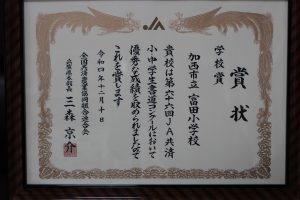 JA
賞状
学校賞
加西市立 富田小学校
貴校は第六十六回JA共済
小・中学生書道コンクールにおいて
優秀な成績を収められましたので
これを賞します
令和四年十二月十日
全国共済農業協同組合連合会
兵庫県本部長 三森京介